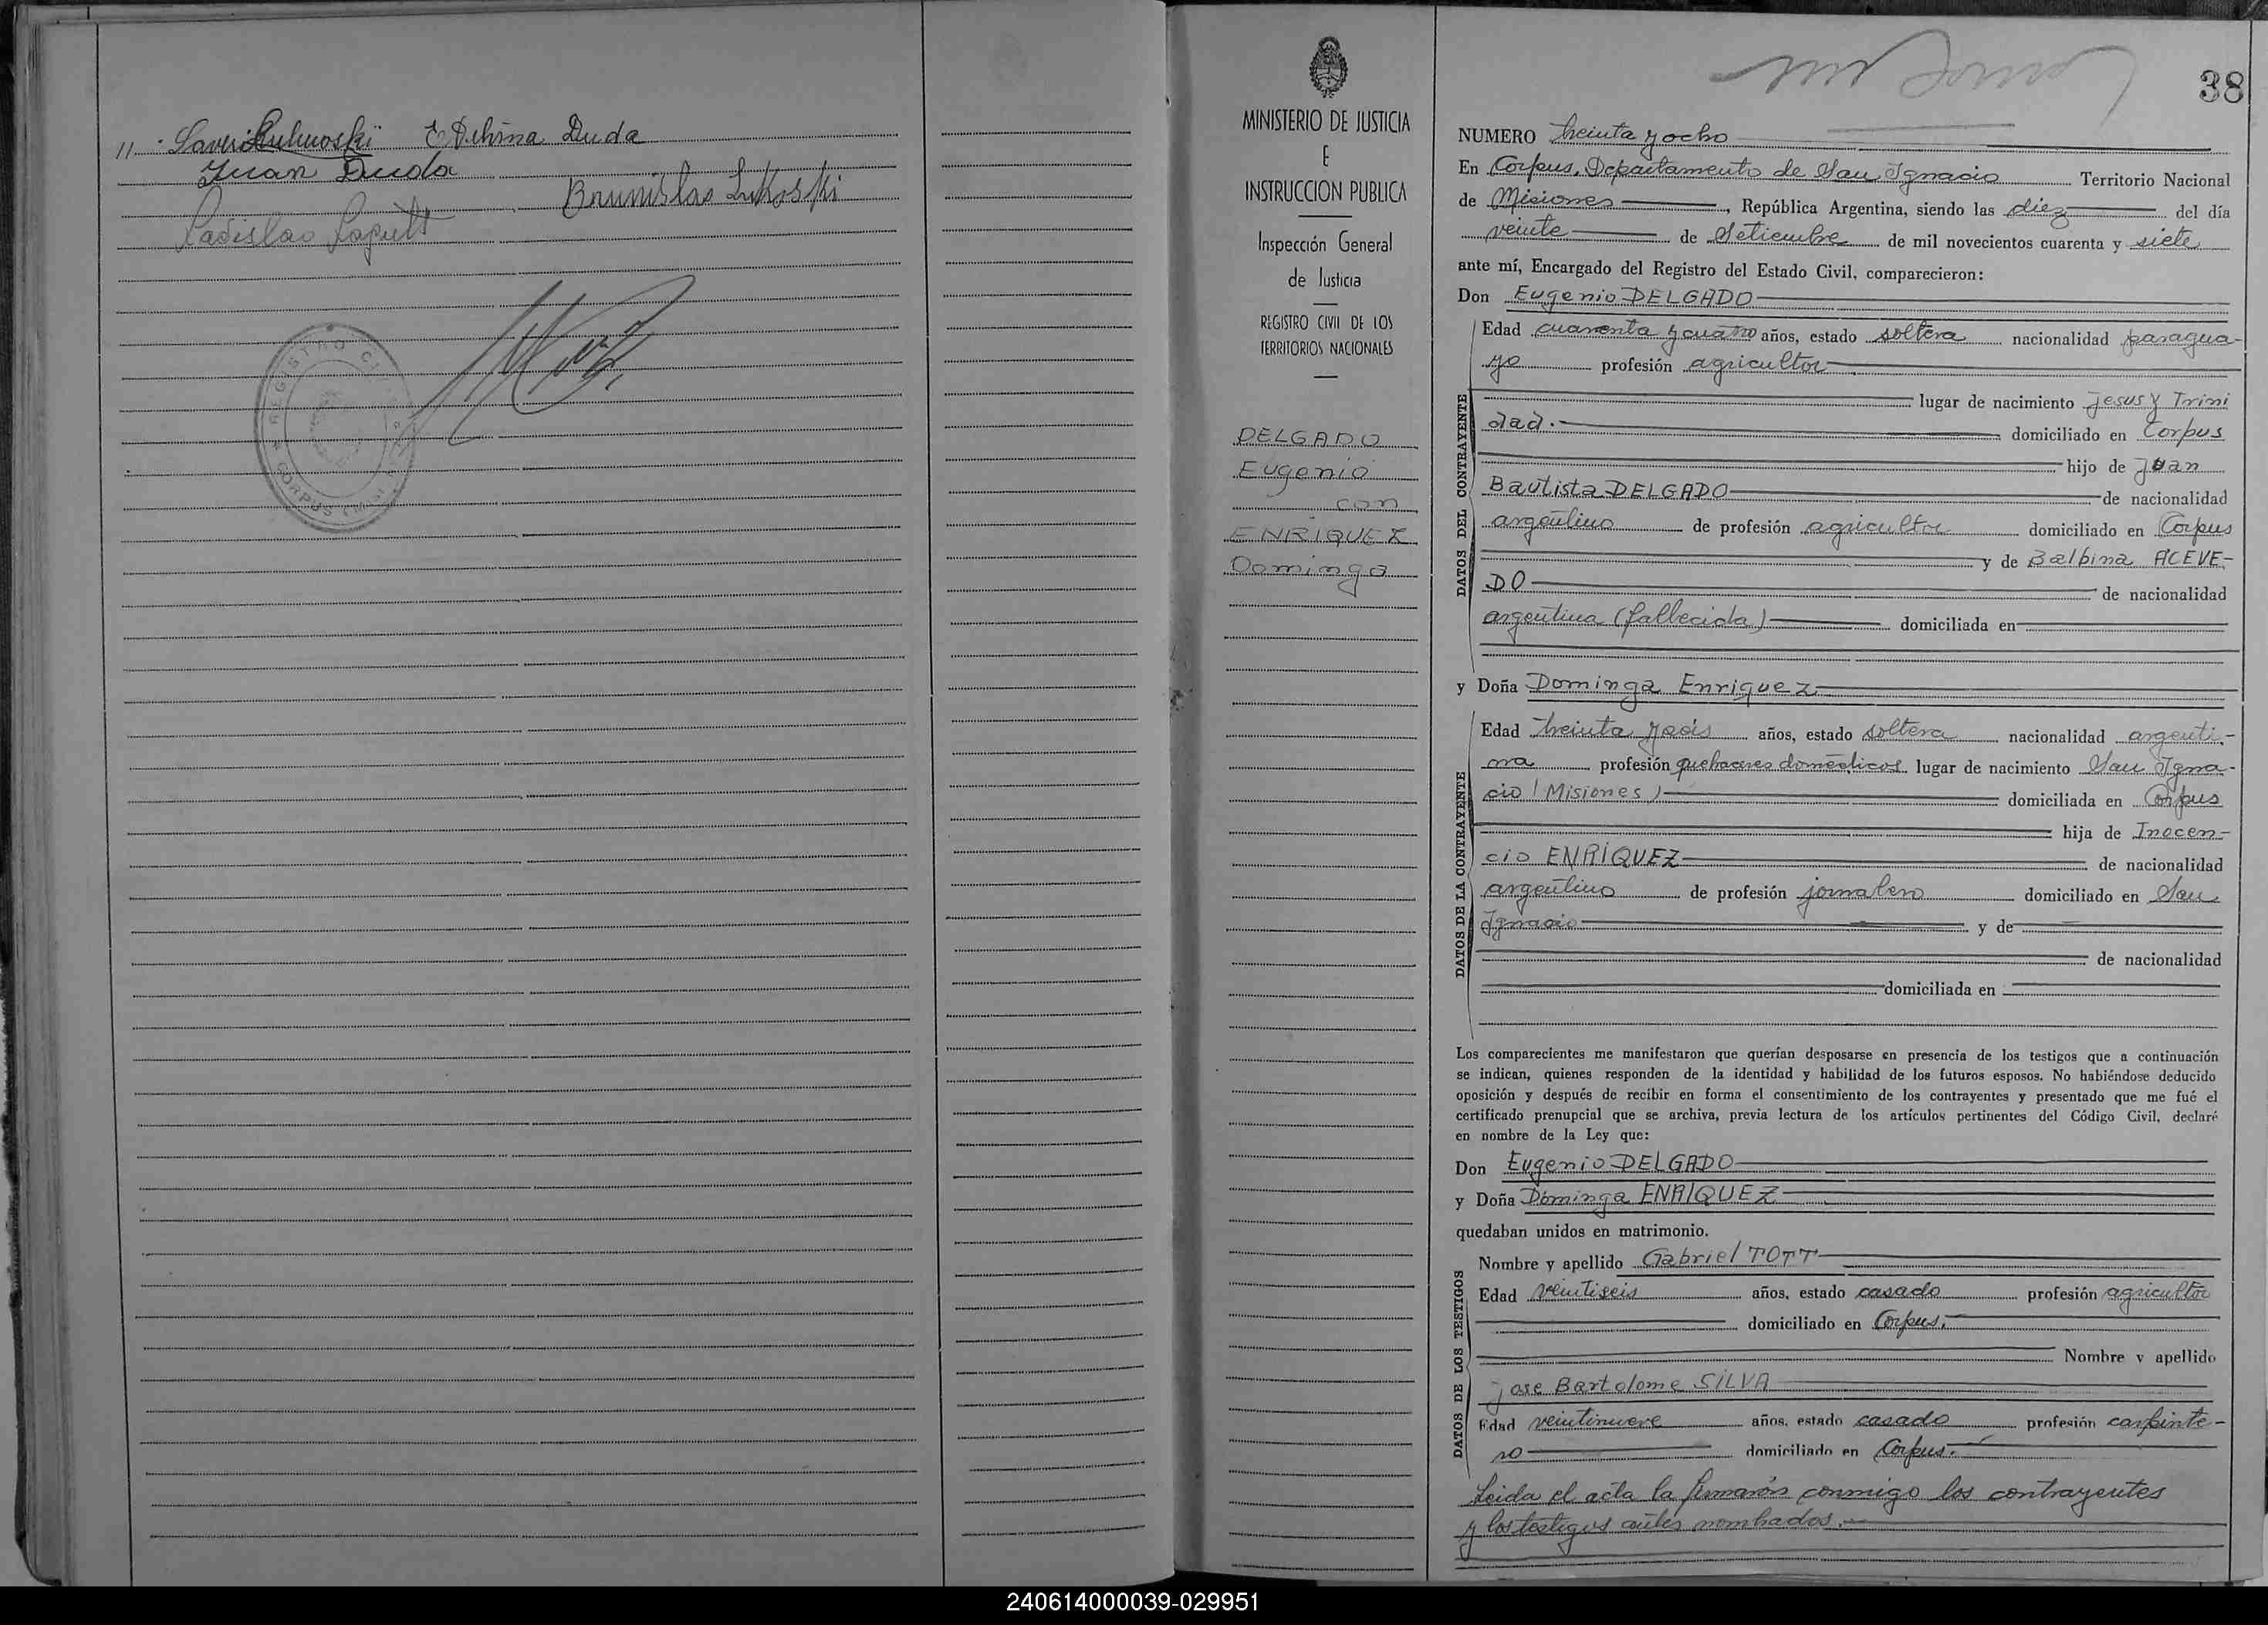 11. Duda
Juan Duda
Brunislao Lukoski
Ladislao
REGISTRO CIVIL
CORPUS
MINISTERIO DE JUSTICIA
E
INSTRUCCION PUBLICA
Inspección General
de Justicia
REGISTRO CIVIL DE LOS
TERRITORIOS NACIONALES
DELGADO
Eugenio
con
ENRIQUEZ
Dominga
38
NUMERO treinta y ocho
En Corpus, Departamento de San Ignacio Territorio Nacional
de Misiones, República Argentina, siendo las diez del día
veinte de Setiembre de mil novecientos cuarenta y siete
ante mí, Encargado del Registro del Estado Civil, comparecieron:
Don Eugenio DELGADO
DATOS DEL CONTRAYENTE
Edad cuarenta y cuatro años, estado soltero nacionalidad paragua-
yo profesión agricultor
lugar de nacimiento Jesus y Trini
dad. domiciliado en Corpus
hijo de Juan
Bautista DELGADO de nacionalidad
argentino de profesión agricultor domiciliado en Corpus
y de Balbina ACEVE-
DO de nacionalidad
argentina (fallecida) domiciliada en
y Doña Dominga Enriquez
DATOS DE LA CONTRAYENTE
Edad treinta y dós años, estado soltera nacionalidad argenti-
na profesión quehaceres domésticos lugar de nacimiento San Igna-
cio (Misiones) domiciliada en Corpus
hija de Inocen-
cio ENRIQUEZ de nacionalidad
argentino de profesión jornalero domiciliado en San
Ignacio y de
de nacionalidad
domiciliada en
Los comparecientes me manifestaron que querían desposarse en presencia de los testigos que a continuación
se indican, quienes responden de la identidad y habilidad de los futuros esposos. No habiéndose deducido
oposición y después de recibir en forma el consentimiento de los contrayentes y presentado que me fué el
certificado prenupcial que se archiva, previa lectura de los artículos pertinentes del Código Civil, declaré
en nombre de la Ley que:
Don Eugenio DELGADO
y Doña Dominga ENRIQUEZ
quedaban unidos en matrimonio.
DATOS DE LOS TESTIGOS
Nombre y apellido Gabriel TOTT
Edad veintiseis años, estado casado profesión agricultor
domiciliado en Corpus.
Nombre y apellido
Jose Bartolome SILVA
Edad veintinueve años, estado casado profesión carpinte-
ro domiciliado en Corpus.
Leida el acta la firmarón conmigo los contrayentes
y los testigos antes nombrados.
240614000039-029951